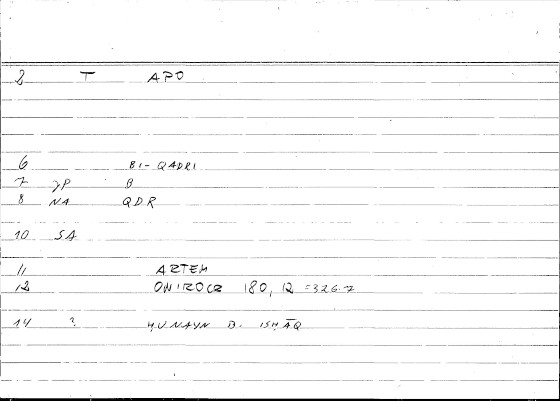 2 T APO
6 BI-QADRI
7 γP B
8 NA QDR
10 SA
11 ARTEM
12 ONIROCR 180, 12 =326.7
14 ? ḤUNAYN B. ISḤĀQ